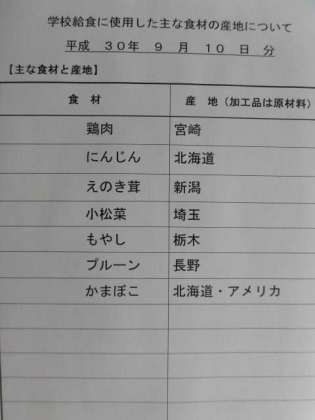 学校給食に使用した主な食材の産地について
平成 30年 9 月 10 日 分
【主な食材と産地】
食 材 産 地（加工品は原材料）
鶏肉 宮崎
にんじん 北海道
えのき茸 新潟
小松菜 埼玉
もやし 栃木
プルーン 長野
かまぼこ 北海道・アメリカ